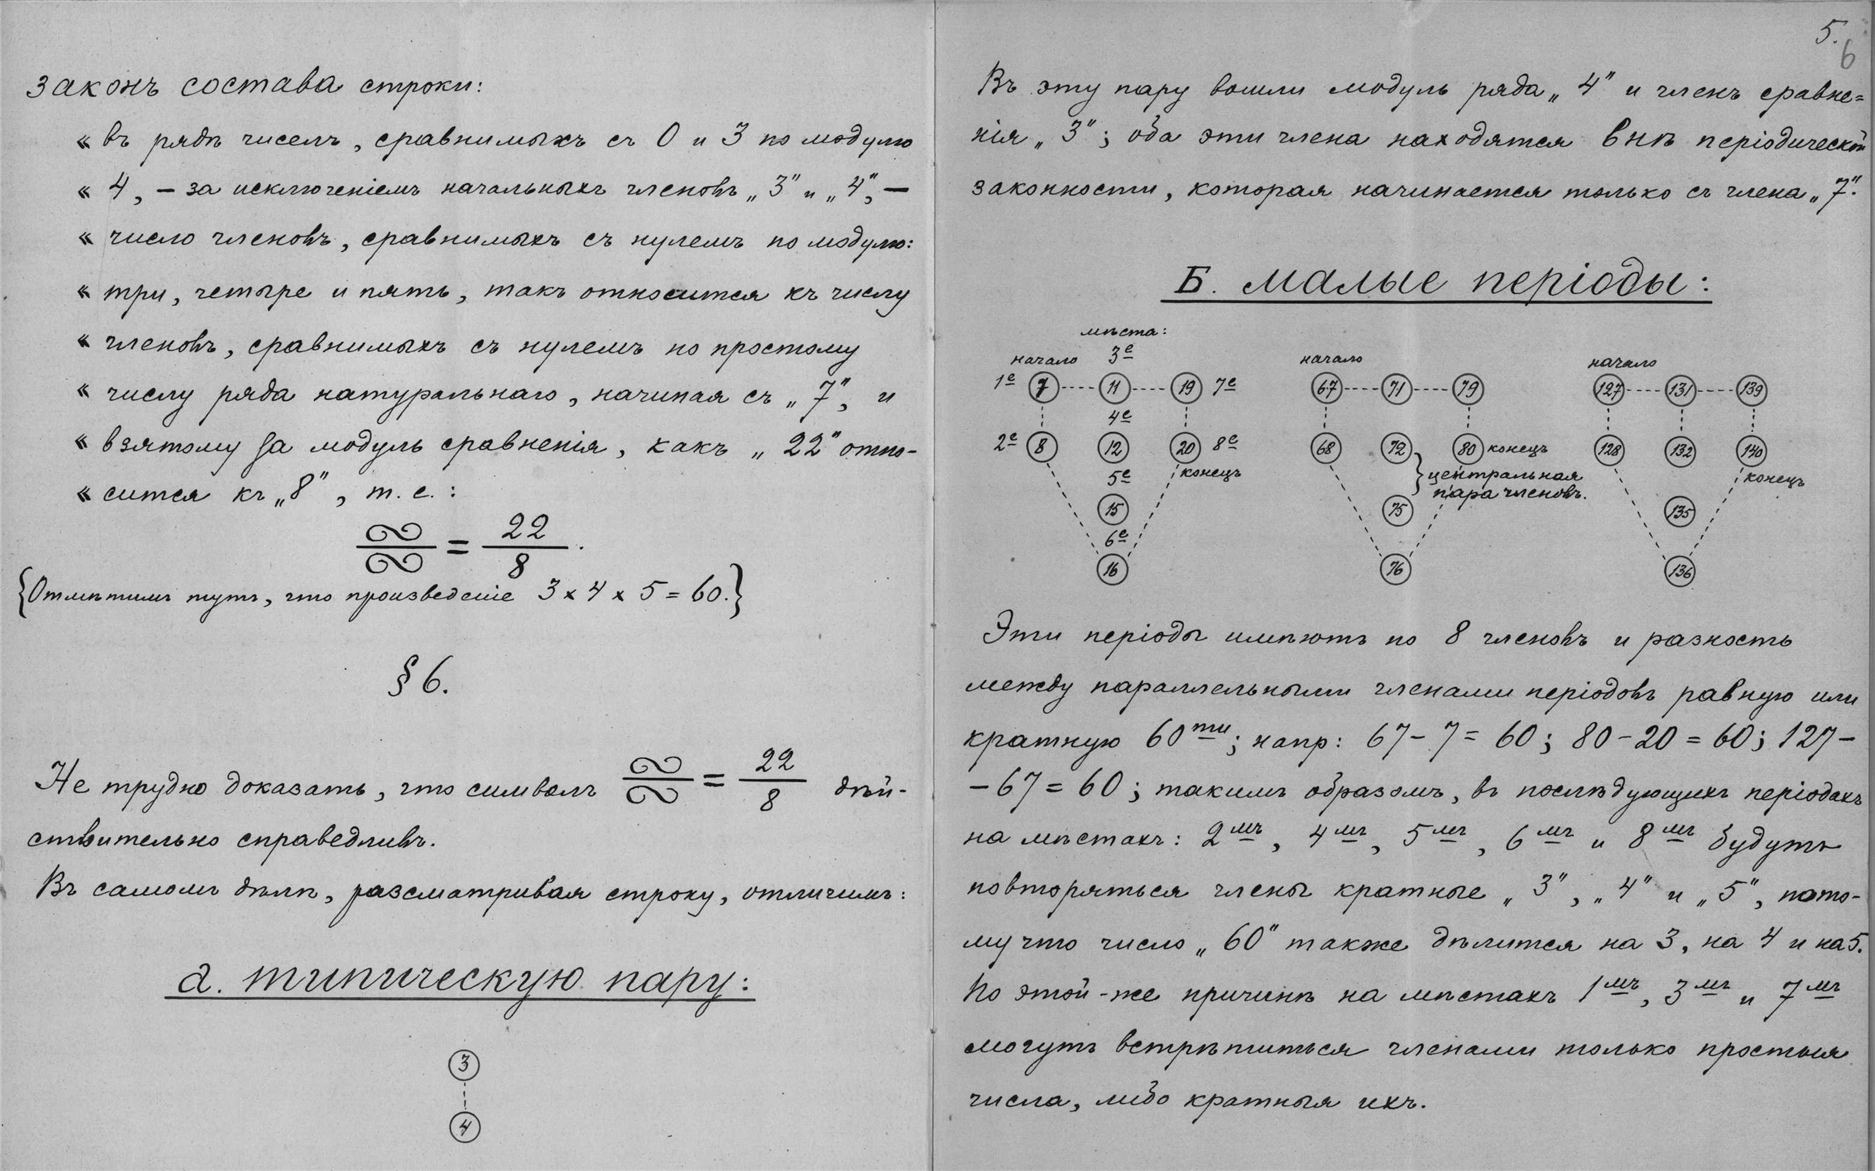 законъ состава строки:
« въ рядѣ чиселъ, сравнимыхъ съ 0 и 3 по модулю
« 4, – за исключеніемъ начальныхъ членовъ „3" и „4", –
« число членовъ, сравнимыхъ съ нулемъ по модулю:
« три, четыре и пять, такъ относится къ числу
« членовъ, сравнимыхъ съ нулемъ по простому
« числу ряда натуральнаго, начиная съ „7", и
« взятому за модуль сравненія, какъ „22" отно-
« сится къ „8", т. е.:
∾/∾ = 22/8.
{Отмѣтимъ тутъ, что произведеніе 3 x 4 x 5 = 60.}
§ 6.
Не трудно доказать, что символъ ∾/∾ = 22/8 дѣй-
ствительно справедливъ.
Въ самомъ дѣлѣ, разсматривая строку, отличимъ:
а. типическую пару:
3
4
5.
6
Въ эту пару вошли модуль ряда „4" и членъ сравне=
нія „3"; оба эти члена находятся внѣ періодической
законности, которая начинается только съ члена „7".
Б. малые періоды:
мѣста:
начало 3е начало начало
1е 7 11 19 7е 67 71 79 127 131 139
4е
2е 8 12 20 8е 68 72 80 конецъ 128 132 140
5е конецъ } центральная пара членовъ. конецъ
15 75 135
6е
16 76 136
Эти періоды имѣютъ по 8 членовъ и разность
между параллельными членами періодовъ равную или
кратную 60ти; напр: 67 – 7 = 60; 80 – 20 = 60; 127 –
– 67 = 60; такимъ образомъ, въ послѣдующихъ періодахъ
на мѣстахъ: 2мъ, 4мъ, 5мъ, 6мъ и 8мъ будутъ
повторяться члены кратные „3", „4" и „5", пото-
му что число „60" также дѣлится на 3, на 4 и на 5.
По этой-же причинѣ на мѣстахъ 1мъ, 3мъ и 7мъ
могутъ встрѣтиться членами только простыя
числа, либо кратныя ихъ.